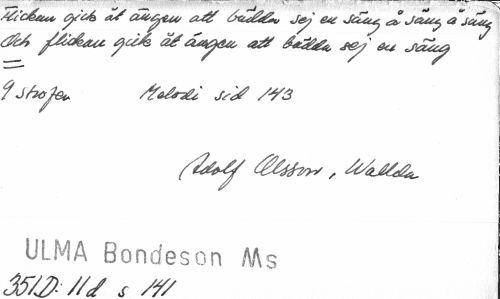 Flickan gick åt ängen att bädda sej en säng å säng å säng
Och flickan gick åt ängen att bädda sej en säng
9 strofer Melodi sid 143
Adolf Olsson, Wallda
ULMA Bondeson Ms
351D: 11d s 141